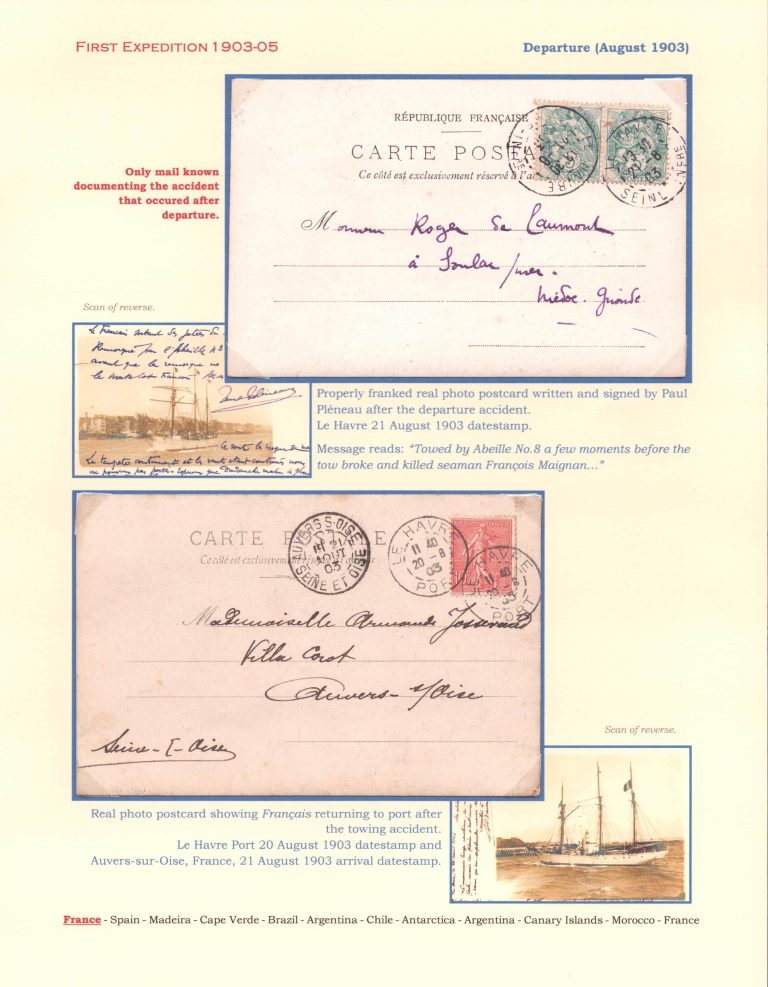 FIRST EXPEDITION 1903-05
Departure (August 1903)
Only mail known
documenting the accident
that occured after
departure.
RÉPUBLIQUE FRANÇAISE
CARTE POS
Ce côté est exclusivement réservé à l'a
LE HAVRE
21 -8
03
SEINE
Monsieur Roger de Caumont
à Soulac s/mer.
Médoc. Gironde
Scan of reverse.
Le Francais sortant des jetées du
Remorqué par l'Abeille No 8
avant que la remorque ne
le matelot francais
Paul Pléneau
Properly franked real photo postcard written and signed by Paul
Pléneau after the departure accident.
Le Havre 21 August 1903 datestamp.
Message reads: “Towed by Abeille No.8 a few moments before the
tow broke and killed seaman François Maignan…”
CARTE POSTALE
Ce côté est exclusivement réservé à l'adresse
AUVERS-S-OISE
21
AOUT
03
SEINE ET OISE
LE HAVRE
11 40
20 -8
03
PORT
LE HAVRE
11 40
20 -8
03
PORT
Mademoiselle Armande Josserand
Villa Corot
Auvers-s/Oise
Seine-&-Oise
Scan of reverse.
Real photo postcard showing Français returning to port after
the towing accident.
Le Havre Port 20 August 1903 datestamp and
Auvers-sur-Oise, France, 21 August 1903 arrival datestamp.
France - Spain - Madeira - Cape Verde - Brazil - Argentina - Chile - Antarctica - Argentina - Canary Islands - Morocco - France